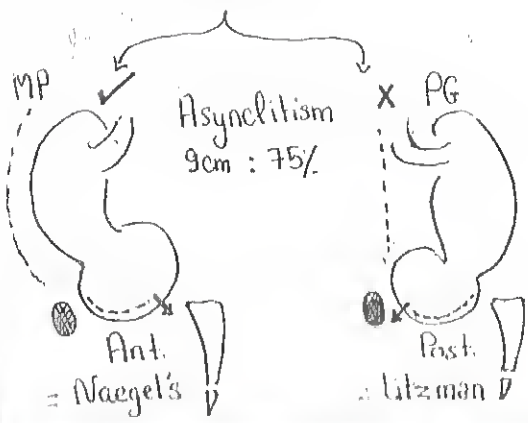 MP ✓ Asynclitism X PG
9cm : 75%
Ant.
= Naegel's
Post.
= Litzman